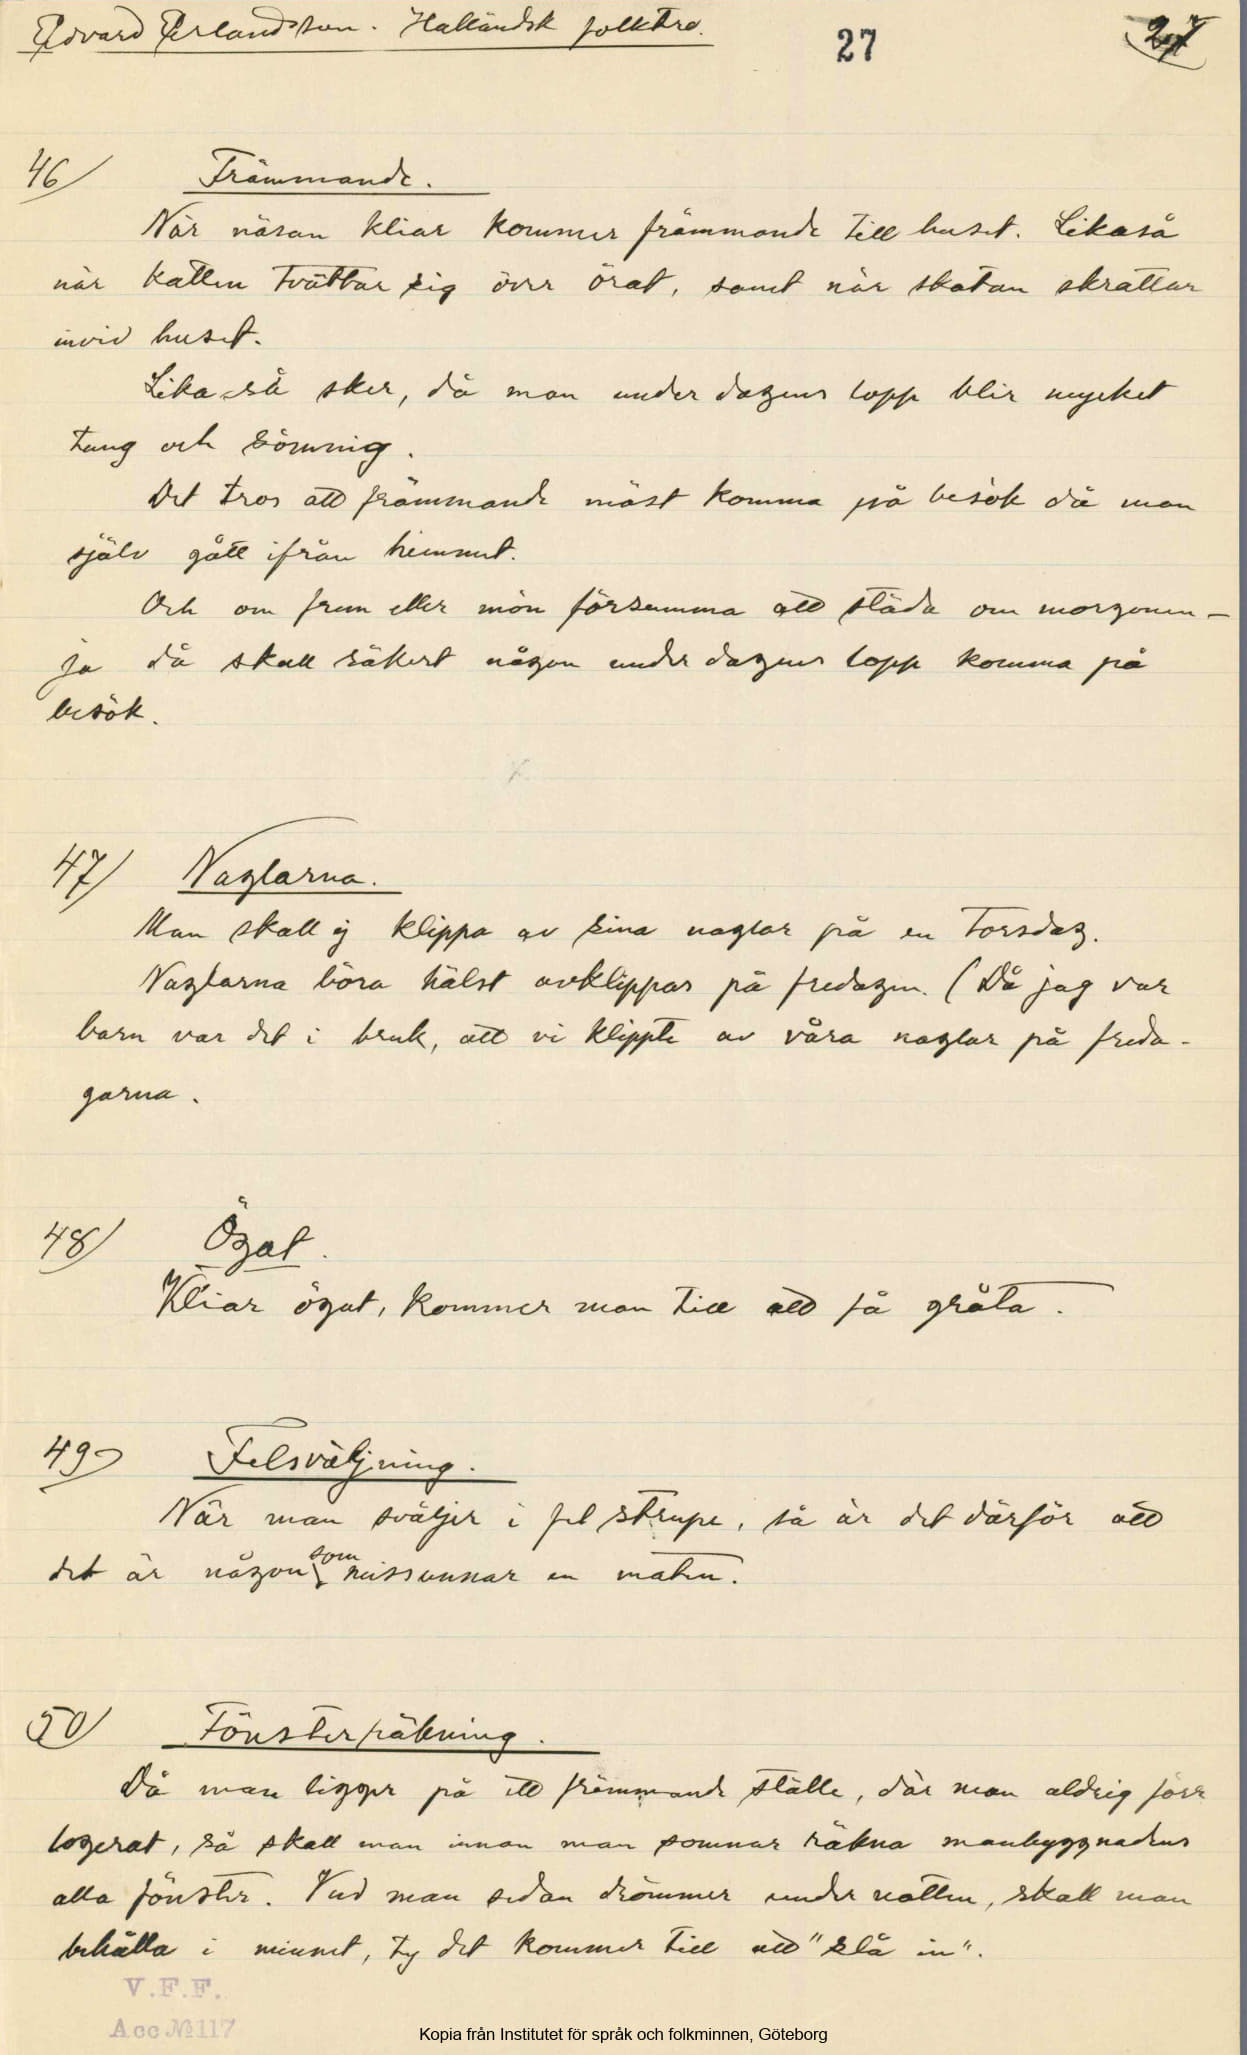 Edvard Erlandsson. Halländsk folktro.
27
27
46/ Främmande.
När näsan kliar kommer främmande till huset. Likaså
när katten tvättar sig över örat, samt när skatan skrattar
invid huset.
Lika så sker, då man under dagens lopp blir mycket
tung och sömnig.
Det tros att främmande mäst komma på besök då man
själv gått ifrån hemmet.
Och om frun eller mön försumma att städa om morgonen –
ja då skall säkert någon under dagens lopp komma på
besök.
47/ Naglarna.
Man skall ej klippa av sina naglar på en Torsdag.
Naglarna böra hälst avklippas på fredagen. (Då jag var
barn var det i bruk, att vi klippte av våra naglar på freda-
garna.
48/ Ögat.
Kliar ögat, kommer man till att få gråta.
49/ Felsväljning.
När man sväljer i fel strupe, så är det därför att
det är någon som missunnar en maten.
50/ Fönsterräkning.
Då man ligger på ett främmande ställe, där man aldrig förr
logerat, så skall man innan man somnar räkna manbyggnadens
alla fönster. Vad man sedan drömmer under natten, skall man
behålla i minnet, ty det kommer till att "slå in".
V.F.F.
Acc № 117
Kopia från Institutet för språk och folkminnen, Göteborg